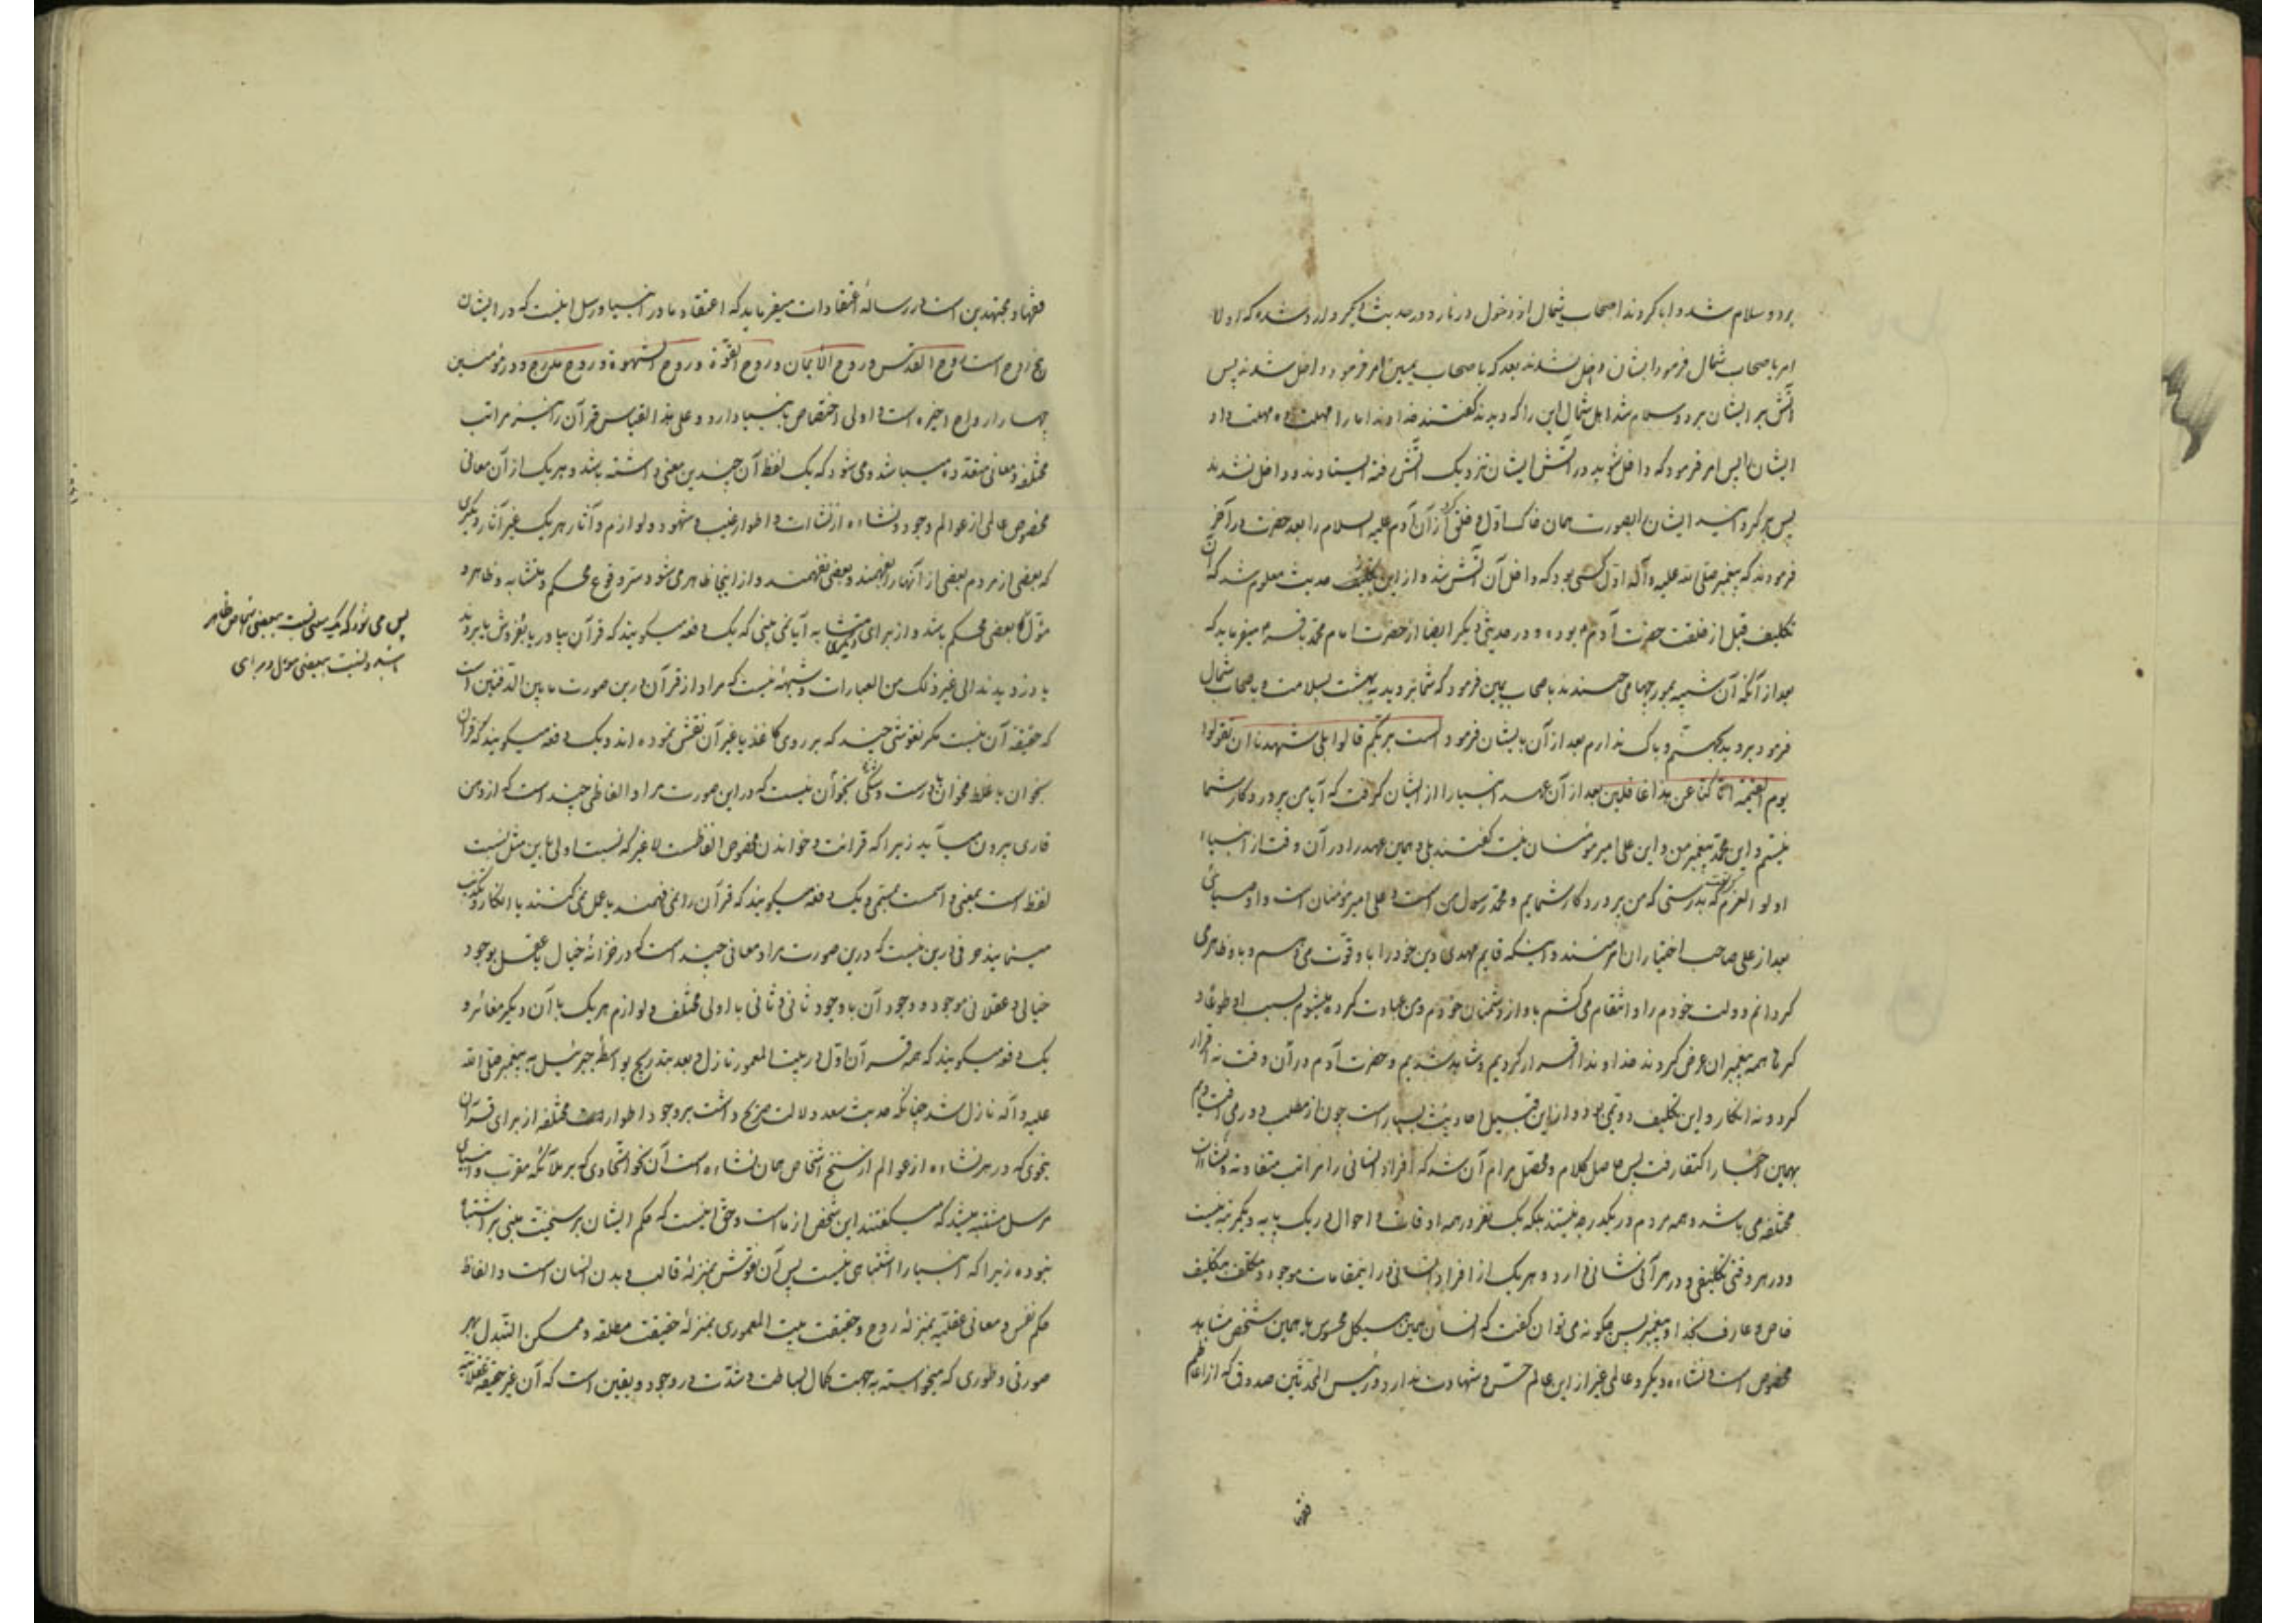 برد و سلام شد و ابا کردند اصحاب شمال از دخول در نار و در حدیث دیگر وارد شده که اولا
امر باصحاب شمال فرمود ایشان داخل نشدند بعد که باصحاب یمین امر فرمود داخل شدند پس
آتش بر ایشان برد و سلام شد اهل شمال این را که دیدند گفتند خداوندا ما را مهلت ده مهلت داد
ایشان را پس امر فرمود که داخل شوید در آتش ایشان نزدیک آتش رفته ایستادند و داخل نشدند
پس برگردانید ایشان را بصورت همان خاک اول و خلق کرد از آن آدم علیه السلام را بعد حضرت در آخر
فرمودند که پیغمبر صلی الله علیه و آله اول کسی بود که داخل آن آتش شد و از این حدیث معلوم شد که آن
تکلیف قبل از خلقت حضرت آدم بوده و در حدیثی دیگر ایضا از حضرت امام محمد باقر میفرماید که
بعد از آنکه آن شبیه بمورچها می جستند باصحاب یمین فرمود که شما بروید به بهشت بسلامت و باصحاب شمال
فرمود بروید بجهنم و باک ندارم بعد از آن بایشان فرمود الست بربکم قالوا بلی شهدنا ان تقولوا
یوم القیمة انا کنا عن هذا غافلین بعد از آن عهد انبیا را از ایشان گرفت که آیا من پروردگار شما
نیستم و این محمد پیغمبر من و این علی امیر مؤمنان نیست گفتند بلی و همین عهد را در آن وقت از انبیاء
اولو العزم گرفت که بدرستی که من پروردگار شمایم و محمد رسول من است و علی امیر مؤمنان است و اوصیائی
بعد از علی صاحب اختیاران امرمنند و اینکه قایم مهدی دین خود را با و قوت می دهم و با و ظاهر می
گردانم دولت خودم را و انتقام می کشم باو از دشمنان خودم و من عبادت کرده میشوم بسبب او طوعا و
کرها همه پیغمبران عرض کردند خداوندا اقرار کردیم و شاهد شدیم و حضرت آدم در آن وقت نه اقرار
کرد و نه انکار و این تکلیف دوئمی بود و از این قبیل احادیث بسیار است چون از مطلب دور می افتادیم
بهمین اخبار اکتفا رفت پس حاصل کلام و محصل مرام آن شد که افراد انسانی را مراتب متفاوته و نشاءات
مختلفه می باشد و همه مردم در یکدرجه نیستند بلکه یک نفر در همه اوقات و احوال در یک پایه و یکمرتبه نیست
و در هر وقتی تکلیفی و در هر آنی شانی دارد و هر یک از افراد انسانی در اینمقامات موجود و مکلف بتکلیف
خاص و عارف بخدا و پیغمبر پس چگونه می توان گفت که انسان همین هیکل محسوس با همین تشخص مشاهد
مخصوص است و نشاءه دیگر و عالمی غیر از این عالم حس و شهادت ندارد و رئیس المحدثین صدوق که از اعاظم
فقها و مجتهدین است در رساله اعتقادات میفرماید که اعتقاد ما در انبیا و رسل اینست که در ایشان
پنج روح است روح القدس و روح الایمان و روح القوة و روح الشهوة و روح مدرج و در مؤمنین
چهار ارواح اخیره است و اولی اختصاص بانبیا دارد و علی هذا القیاس قرآن را نیز مراتب
مختلفه و معانی متعدده میباشد و می شود که یک لفظ آن چندین معنی داشته باشد و هر یک از آن معانی
مخصوص عالمی از عوالم وجود و نشاءه از نشاءات و اطوار غیب و شهود و لوازم و آثار هر یک غیر آثار دیگری
که بعضی از مردم بعضی از آنها را بفهمند و بعضی نفهمند و از اینجا ظاهر می شود سر وقوع محکم و متشابه و ظاهر و
مؤل بعضی محکم باشد و از برای دیگری متشابه آیا نمی بینی که یک دفعه میگویند که قرآن بیاور یا بفروش یا بردند
یا دزدیدند الی غیر ذلک من العبارات و شبهه نیست که مراد از قرآن درین صورت ما بین الدفتین است
که حقیقه آن نیست مگر نقوشی چند که بر روی کاغذ یا غیر آن نقش نموده اند و یک دفعه میگویند که قرآن
بخوان یا غلط مخوان یا درست و شکی نیست که در این صورت مراد الفاظی چند است که از دهن
قاری بیرون میآید زیرا که قرائت و خواندن مخصوص الفاظست لا غیر که نسبت اولی باین مثل نسبت
لفظ است بمعنی و اسمست بمسمی و یک دفعه میگویند که قرآن را نمی فهمند یا عمل نمی کنند یا انکار و تکذیب
مینمایند حرفی در این نیست که درین صورت مراد معانی چند است که در خزانه خیال یا عقل بوجود
خیالی و عقلانی موجود و وجود آن با وجود ثانی و ثانی با اولی مختلف و لوازم هر یک با آن دیگر مغائر و
یک دفعه میگویند که همه قرآن اول در بیت المعمور نازل و بعد بتدریج بواسطه جبرئیل به پیغمبر صلی الله
علیه و آله نازل شد چنانکه حدیث سعد دلالت صریح داشت بر وجود اطوار مختلفه از برای قرآن
بنحوی که در هر نشاءه از عوالم از سنخ اشخاص همان نشاءه است آن نحو اتحادی که بر ملائکه مقرب و انبیای
مرسل مشتبه میشد که میگفتند این شخص از ما است و حق اینست که حکم ایشان بر سنخیت مبنی بر اشتباه
نبوده زیرا که انبیا را اشتباهی نیست پس آن نقوش بمنزله قالب و بدن انسان است و الفاظ
حکم نفس و معانی عقلیه بمنزله روح و حقیقت بیت المعموری بمنزله حقیقت مطلقه و ممکن التبدل بهر
صورتی و طوری که میخواسته به جهت کمال بساطت و شدت در وجود و یقین است که آن غیر حقیقه عقلانیه
پس می شود که یک معنی نسبت ببعضی اشخاص ظاهر
باشد و نسبت ببعضی مؤل و برای
فقها